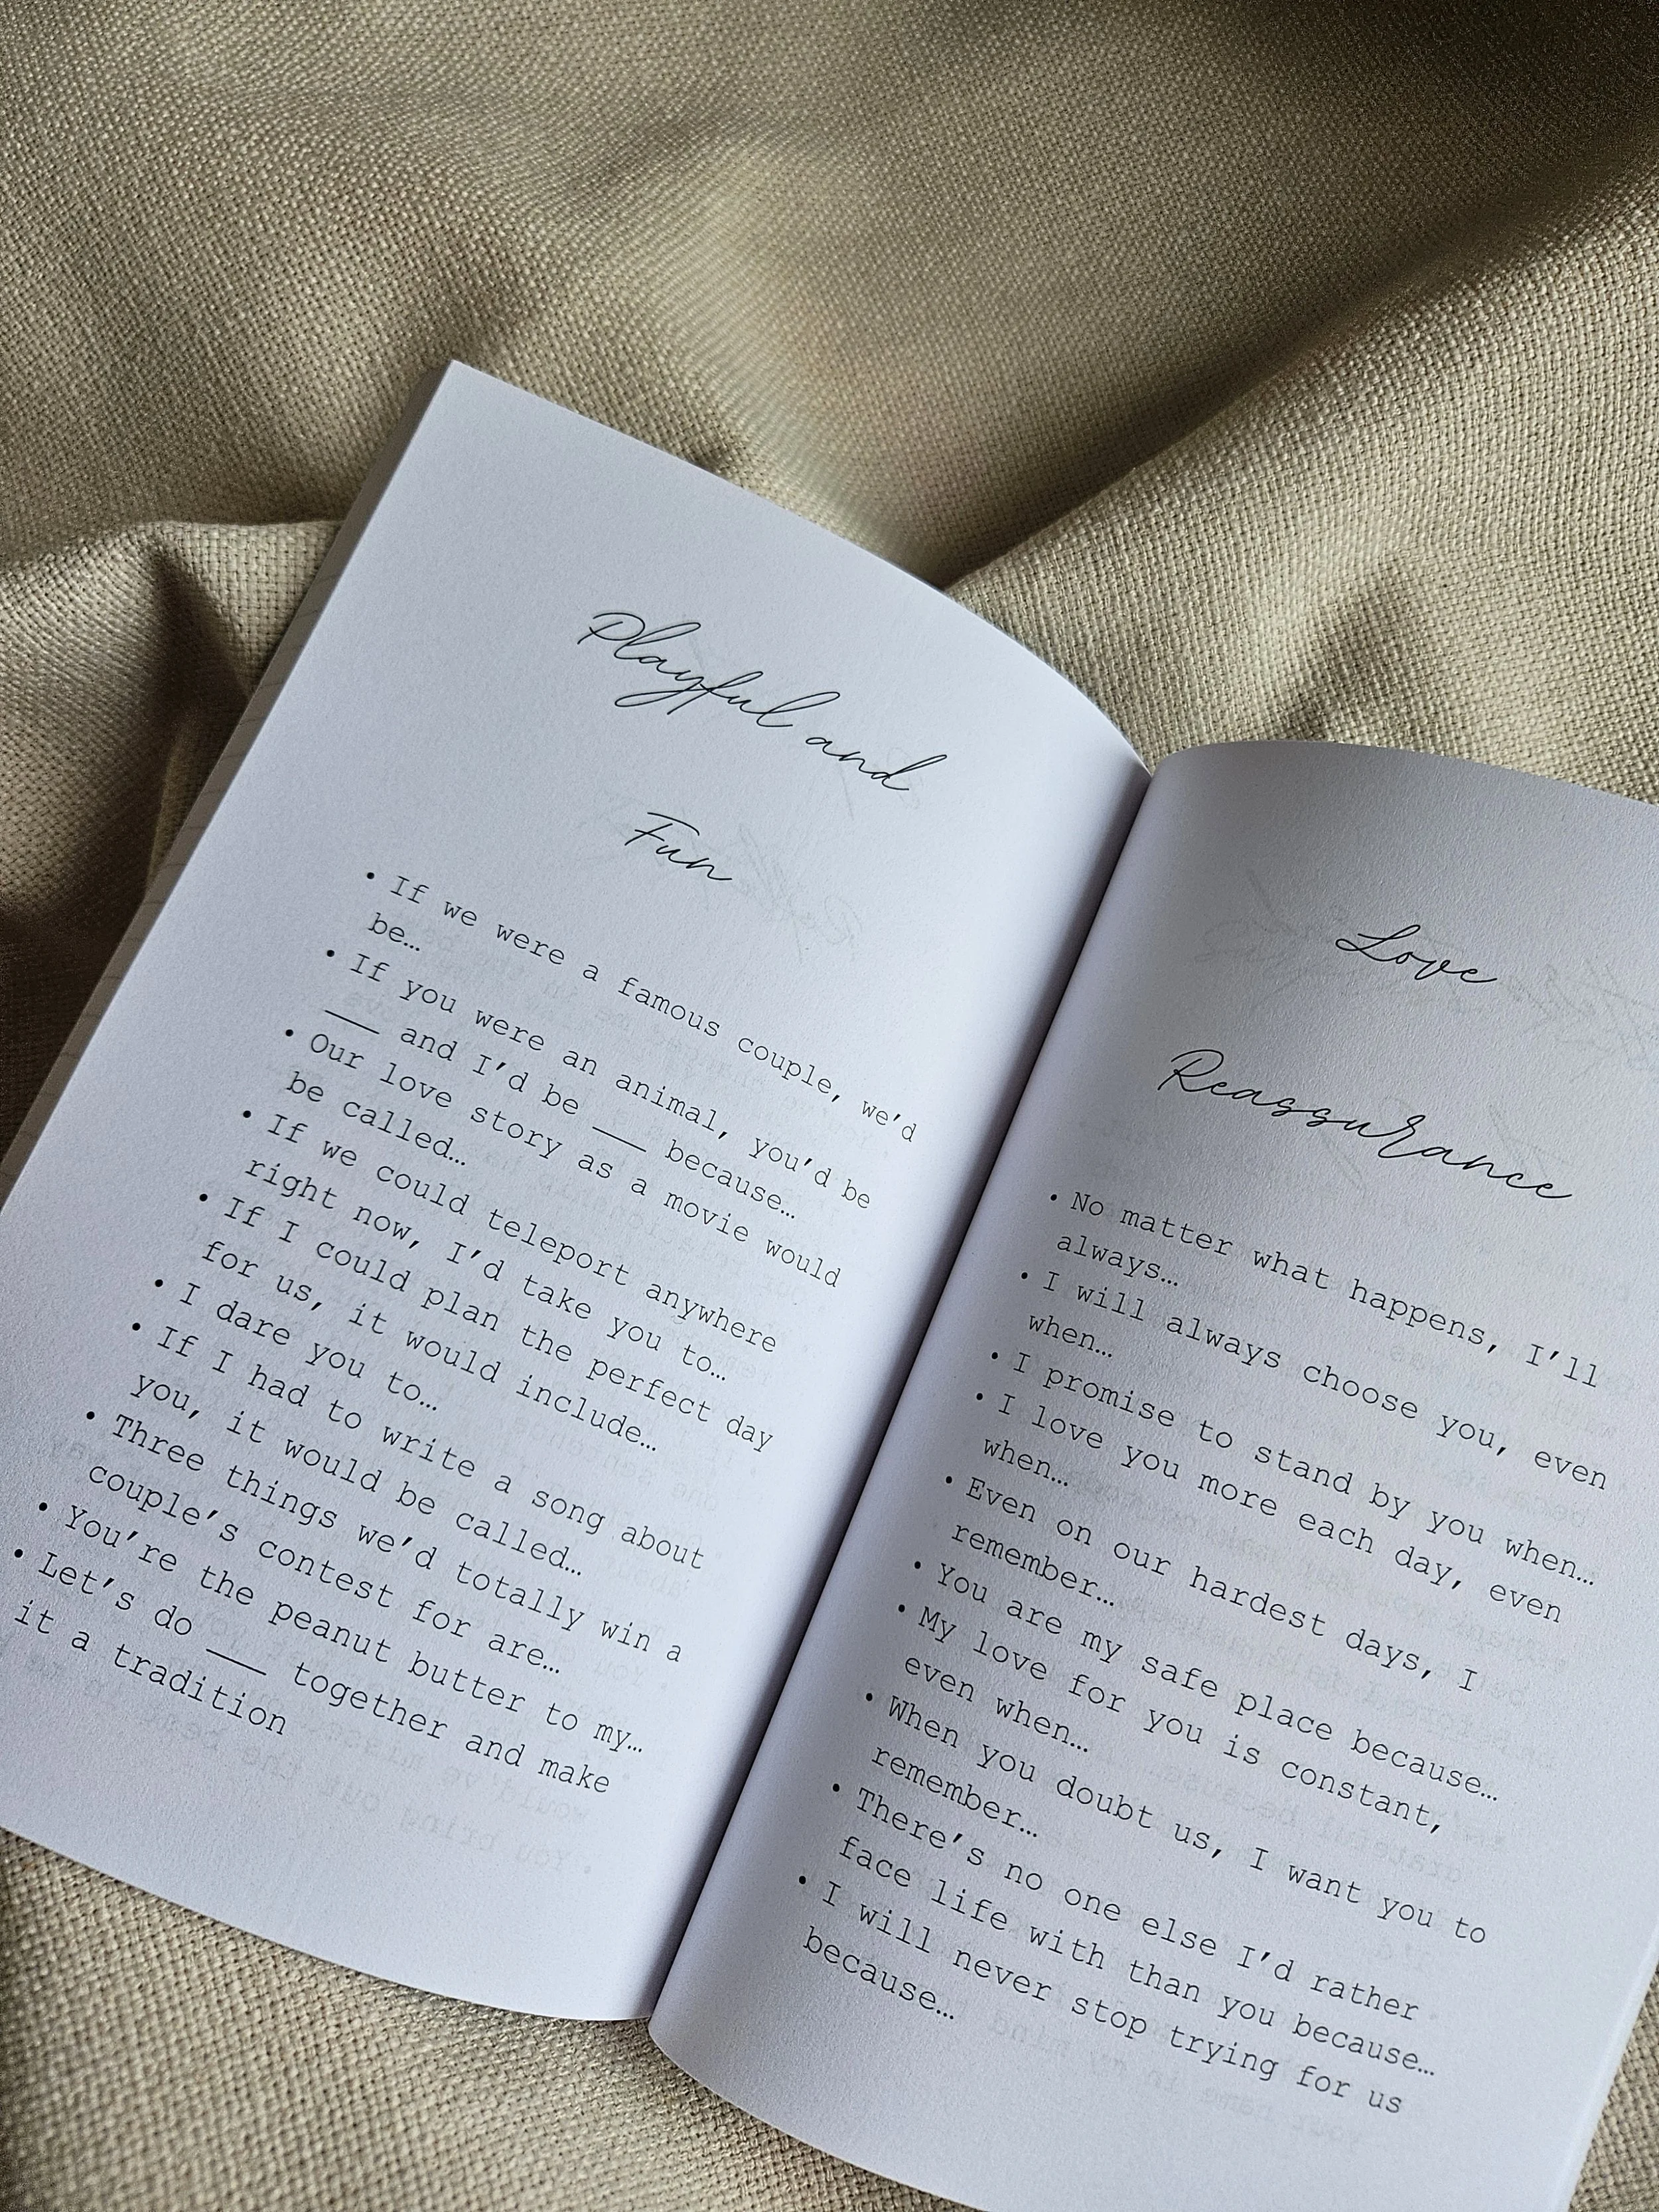 Playful and
Fun
• If we were a famous couple, we'd
be…
• If you were an animal, you'd be
___ and I'd be ___ because…
• Our love story as a movie would
be called…
• If we could teleport anywhere
right now, I'd take you to…
• If I could plan the perfect day
for us, it would include…
• I dare you to…
• If I had to write a song about
you, it would be called…
• Three things we'd totally win a
couple's contest for are…
• You're the peanut butter to my…
• Let's do ___ together and make
it a tradition
Love
Reassurance
• No matter what happens, I'll
always…
• I will always choose you, even
when…
• I promise to stand by you when…
• I love you more each day, even
when…
• Even on our hardest days, I
remember…
• You are my safe place because…
• My love for you is constant,
even when…
• When you doubt us, I want you to
remember…
• There's no one else I'd rather
face life with than you because…
• I will never stop trying for us
because…